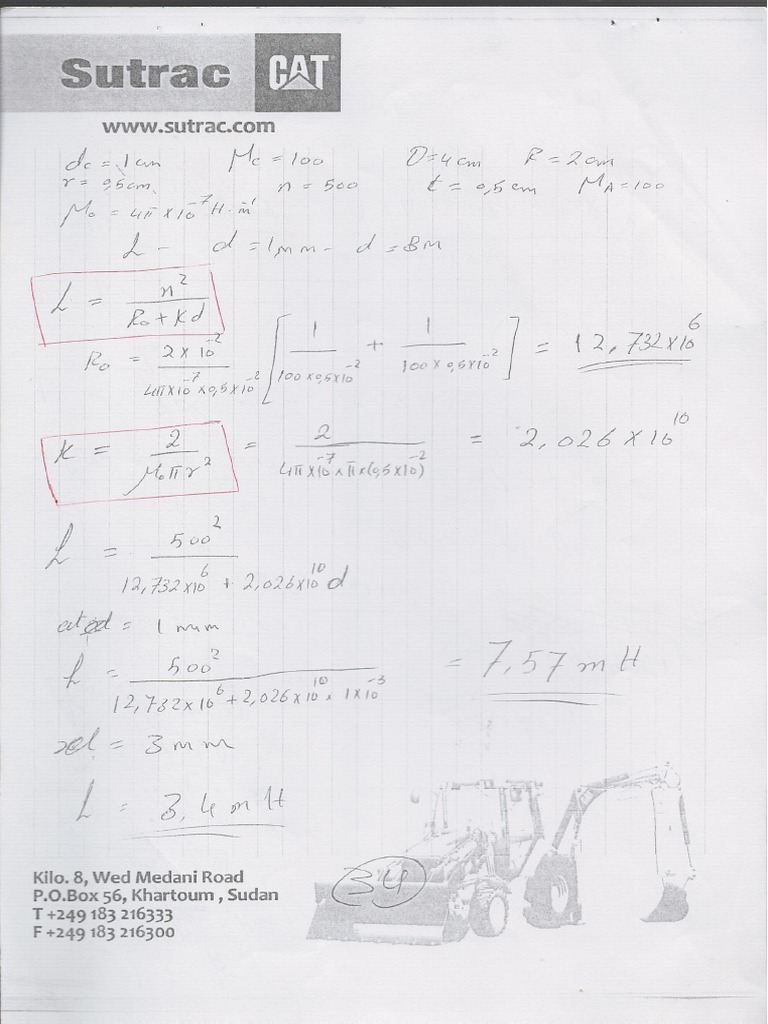 Sutrac CAT
www.sutrac.com
dc = 1 cm μc = 100 D = 4 cm R = 2 cm
r = 0,5 cm n = 500 t = 0,5 cm μA = 100
μo = 4π × 10^-7 H·m^-1
L - d = 1 mm - d = 3 m
L = n^2 / (Ro + Kd)
Ro = (2 × 10^-2) / (4π × 10^-7 × 0,5 × 10^-2) [ 1 / (100 × 0,5 × 10^-2) + 1 / (100 × 0,5 × 10^-2) ] = 12,732 × 10^6
K = 2 / (μo π r^2) = 2 / (4π × 10^-7 × π × (0,5 × 10)^-2) = 2,026 × 10^10
L = 500^2 / (12,732 × 10^6 + 2,026 × 10^10 d)
at d = 1 mm
L = 500^2 / (12,732 × 10^6 + 2,026 × 10^10 × 1 × 10^-3) = 7,57 m H
d = 3 mm
L = 3,4 m H
Kilo. 8, Wed Medani Road
P.O.Box 56, Khartoum , Sudan
T +249 183 216333
F +249 183 216300
34